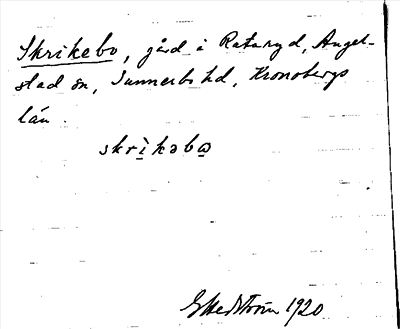 Skrikebo, gård i Rataryd, Angel-
stad sn, Sunnerbo hd, Kronobergs
län.
skrikəbo
G Hedström 1920